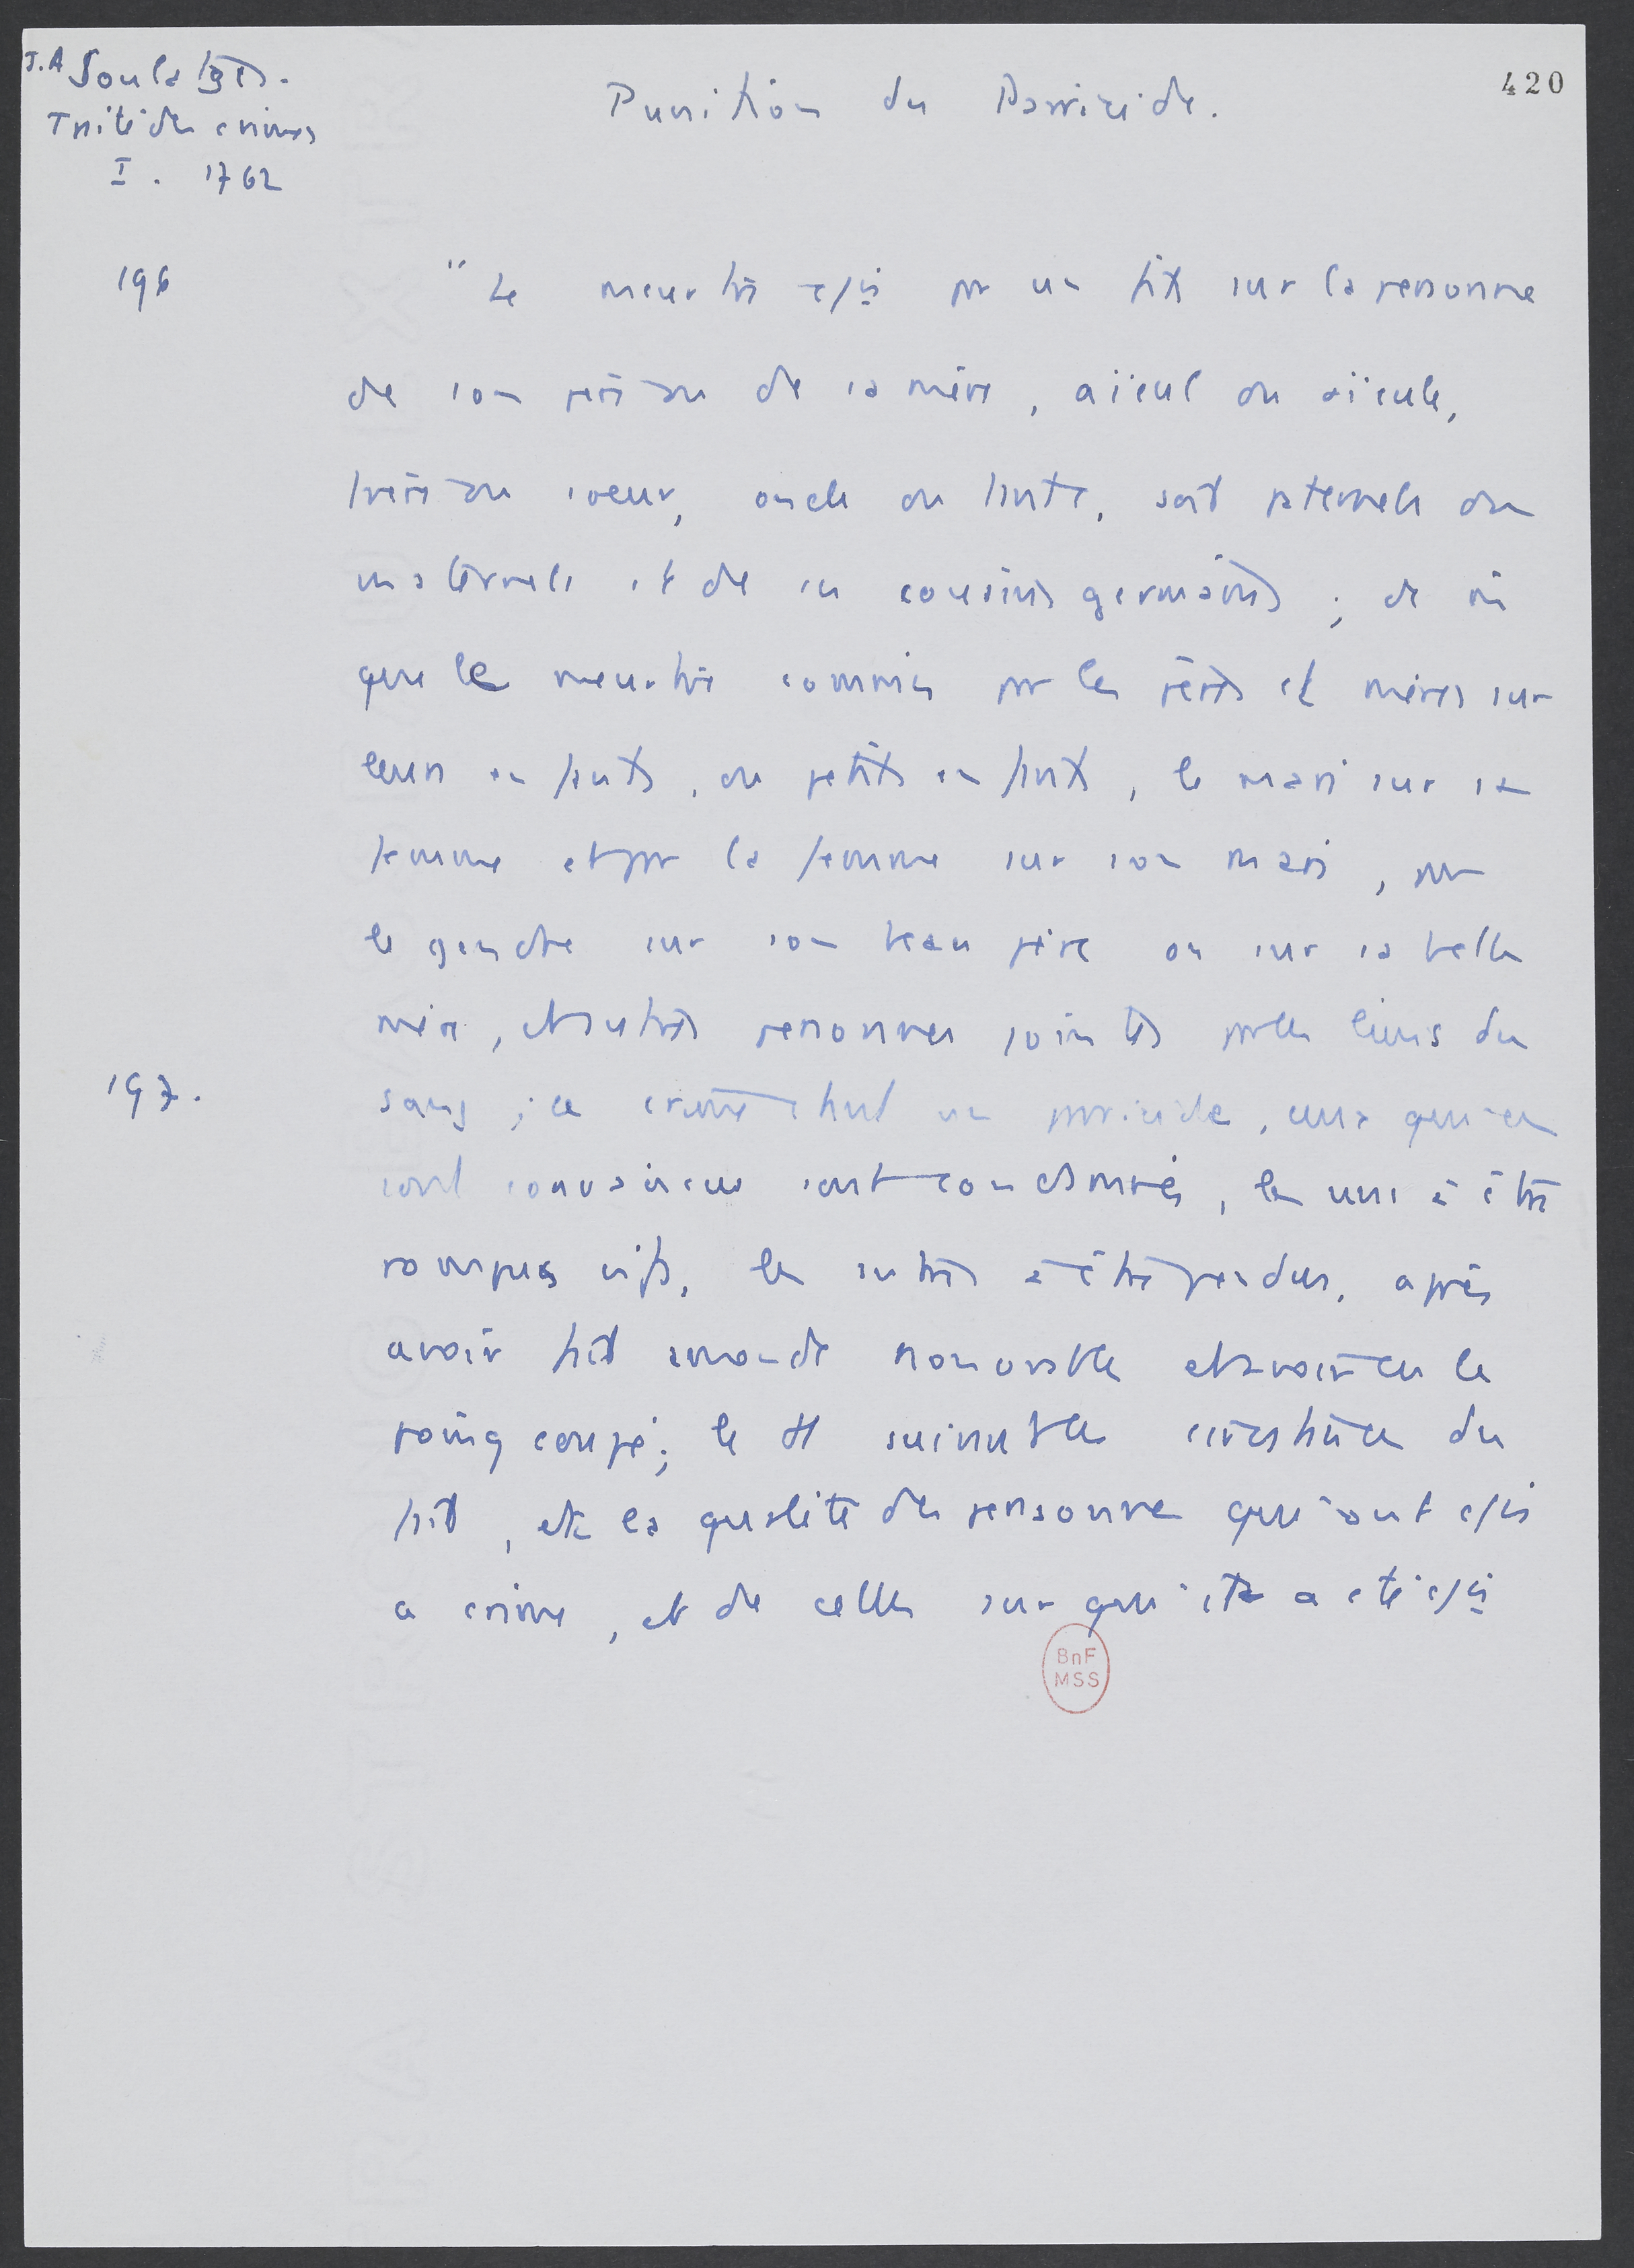 J.A Soulatges.
Traité des crimes
I. 1762
420
Punition du Parricide.
196
"Le meurtre c/is par un fils sur la personne
de son père ou de sa mère, aïeul ou aïeule,
frère ou soeur, oncle ou tante, soit paternels ou
maternels et de ses cousins germains ; de
que le meurtre commis par les pères et mères sur
leurs enfants, ou petits enfants, le mari sur sa
femme et par la femme sur son mari, par
le gendre sur son beau père ou sur sa belle
mère, et autres personnes jointes par les liens du
197.
sang ; ce crime étant un parricide, ceux qui en
sont convaincus sont condamnés, les uns à être
rompus vifs, les autres à être pendus, après
avoir fait amende honorable et avoir eu le
poing coupé; le tt suivant les circonstances du
fait, et la qualité des personnes qui ont c/is
ce crime, et de celles sur qui il a été c/is
BnF
MSS